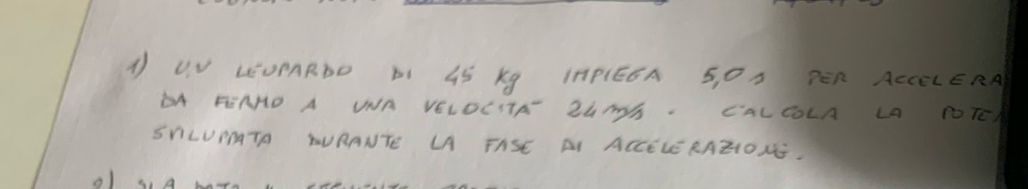 1) UN LEOPARDO DI 45 kg IMPIEGA 5,0 s PER ACCELERA
DA FERMO A UNA VELOCITA' 24 m/s. CALCOLA LA POTE
SVILUPPATA DURANTE LA FASE DI ACCELERAZIONE.
2) SIA